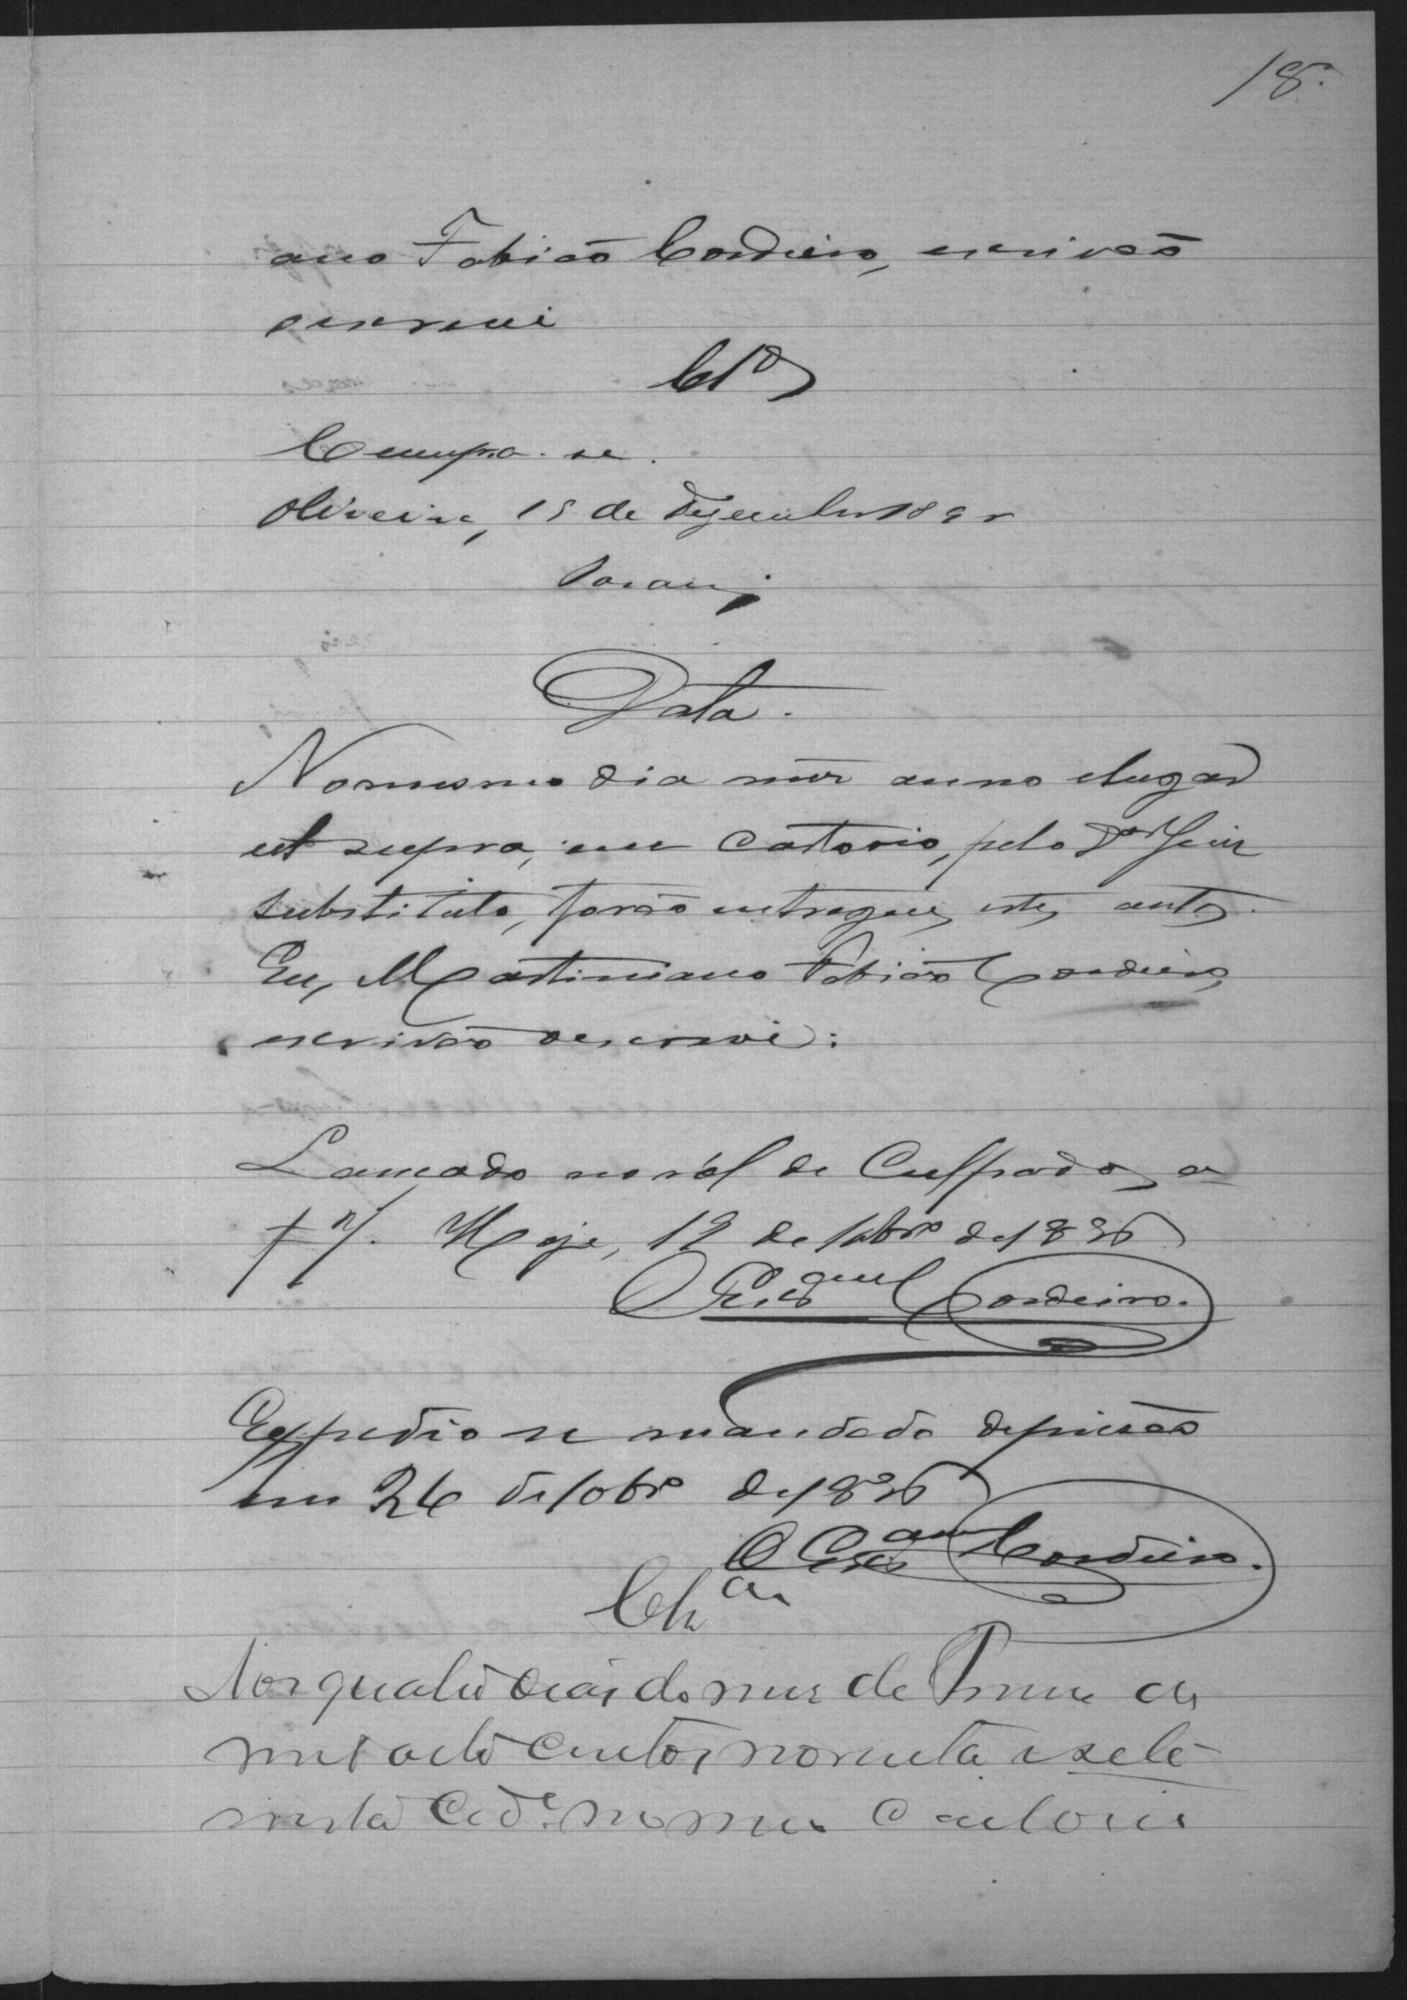 18.
ano Fabião Cordeiro, escrivão
o escrevi
Cls
Cumpra-se.
Oliveira, 15 de Dezembro 189
Data.
No mesmo dia mez anno e lugar
ut supra, em cartorio, pelo Dor Juiz
substituto, forão entregues estes autos.
Eu, Martiniano Fabião Cordeiro,
escrivão o escrevi:
Lançado no rol de Culpados a
f. Hoje, 12 de 1896
O Escam Cordeiro.
Expedio se mandado de prisão
em 26 de 10brº de 1896
O Escam Cordeiro.
Clsam
Aos quatro dias do mez de de
mil oito centos noventa e sete
nesta Cide no meu Cartorio